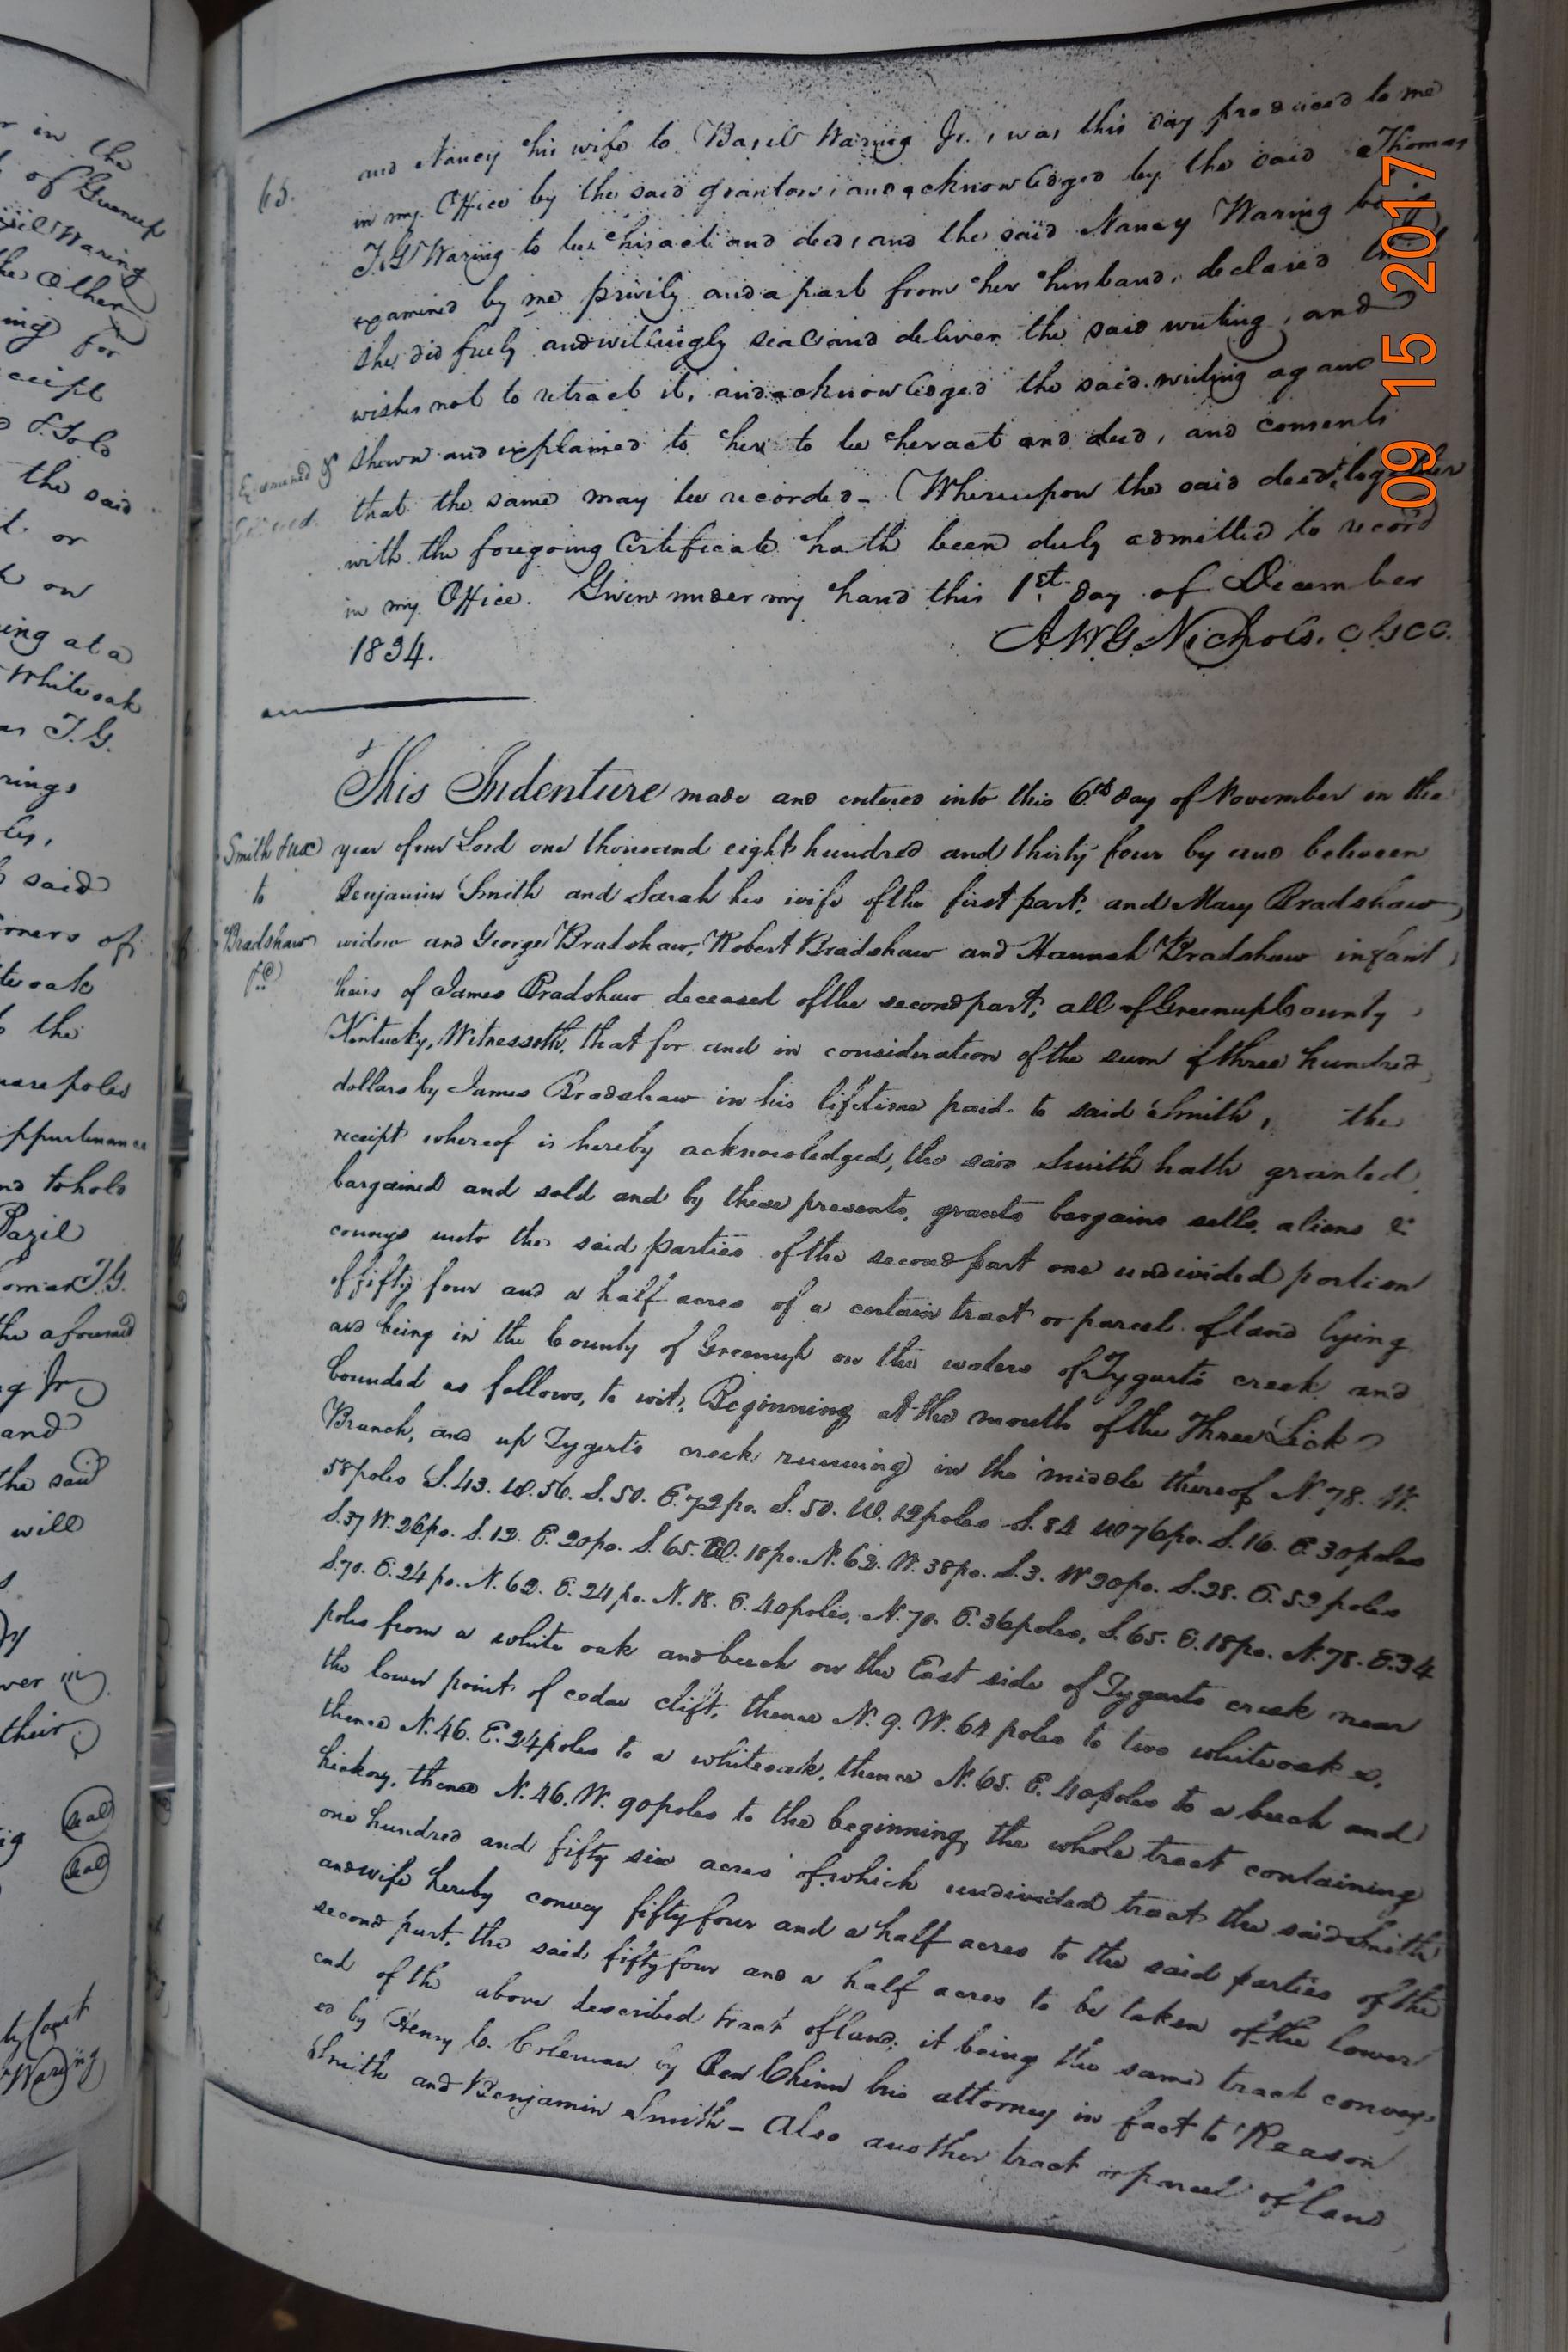 r in the
of Greenup
sil Waring
the Other
ing for
ceipt
d Sold
the said
t. or
on
ing at a
White oak
as T.G.
rings
said
orners of
te oak
the
uare poles
ppurtenance
nd to hold
Bazil
omas T.G.
the aforesaid
g Jr
and
the said
will
ver in
their
Seal
ig Seal
ty Court
Waring
65.
and Nancy his wife to Basil Waring Jr., was this day produced to me
in my Office by the said grantors, and acknowledged by the said Thomas
T.G Waring to be his act and deed, and the said Nancy Waring being
examined by me privily and a part from her husband, declared that
she did freely and willingly seal and deliver the said writing, and
wishes not to retract it, and acknowledged the said writing again
Examined &
shewn and explained to her to be her act and deed, and consents
that the same may be recorded - Whereupon the said deed, together
with the foregoing Certificate hath been duly admitted to record
in my Office. Given under my hand this 1st day of December
1834.
A.W.G. Nichols. C G C C.
This Indenture made and entered into this 6th day of November in the
Smith & ux
year of our Lord one thousand eight hundred and thirty four by and between
to
Benjamin Smith and Sarah his wife of the first part, and Mary Bradshaw,
Bradshaw
widow and George Bradshaw, Robert Bradshaw and Hannah Bradshaw infant
heirs of James Bradshaw deceased of the second part, all of Greenup County
Kentucky, Witnesseth, that for and in consideration of the sum of three hundred
dollars by James Bradshaw in his lifetime paid to said Smith, the
receipt whereof is hereby acknowledged, the said Smith hath granted
bargained and sold and by these presents, grants bargains sells, aliens &
conveys unto the said parties of the second part one undivided portion
of fifty four and a half acres of a certain tract or parcel of land lying
and being in the County of Greenup on the waters of Tygarts creek and
bounded as follows, to wit, Beginning at the mouth of the Three Lick
Branch, and up Tygerts creek running in the middle thereof N. 78. W.
58 poles S. 43. W. 56. S. 50. E. 72 po. S. 50. W. 12 poles S. 82 W 76 po. S. 16. E. 30 poles
S. 37 W. 26 po. S. 12. E. 20 po. S. 65. W. 18 po. N. 62. W. 38 po. S. 3. W 20 po. S. 28. E. 52 poles
S. 70. E. 24 po. N. 62. E. 24 po. N. 18. E. 40 poles, N. 70. E. 36 poles, S. 65. E. 18 po. N. 78. E. 34
poles from a white oak and beech on the East side of Tygarts creek near
the lower point of cedar clift, thence N. 9. W. 64 poles to two white oaks,
thence N. 46. E. 24 poles to a white oak, thence N. 65. E. 40 poles to a beech and
hickory, thence N. 46. W. 90 poles to the beginning, the whole tract containing
one hundred and fifty six acres of which undivided tract the said Smith
and wife hereby convey fifty four and a half acres to the said parties of the
second part, the said fifty four and a half acres to be taken of the lower
end of the above described tract of land, it being the same tract convey-
ed by Henry C. Coleman by Ben Chinn his attorney in fact to Reason
Smith and Benjamin Smith - Also another tract or parcel of land
09 15 2017